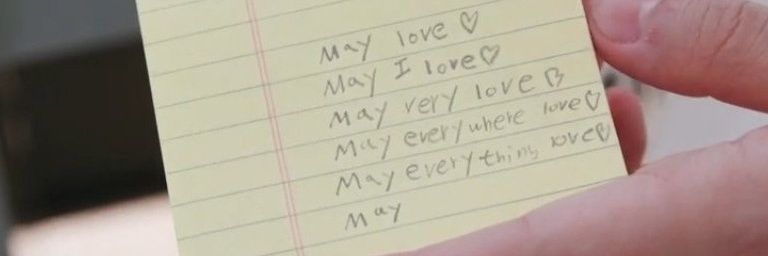 May love ♡
May I love ♡
May very love ♡
May everywhere love ♡
May everything love ♡
May